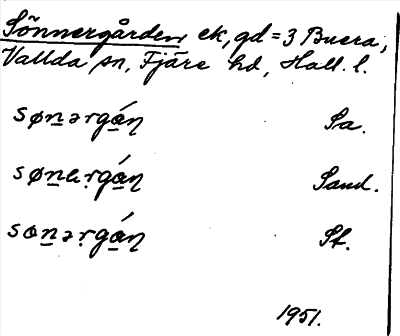 Sönnergården, ek, gd = 3 Buera,
Vallda sn, Fjäre hd, Hall. l.
sønərgán Sa.
sønergán Sand.
sonərgán St.
1951.